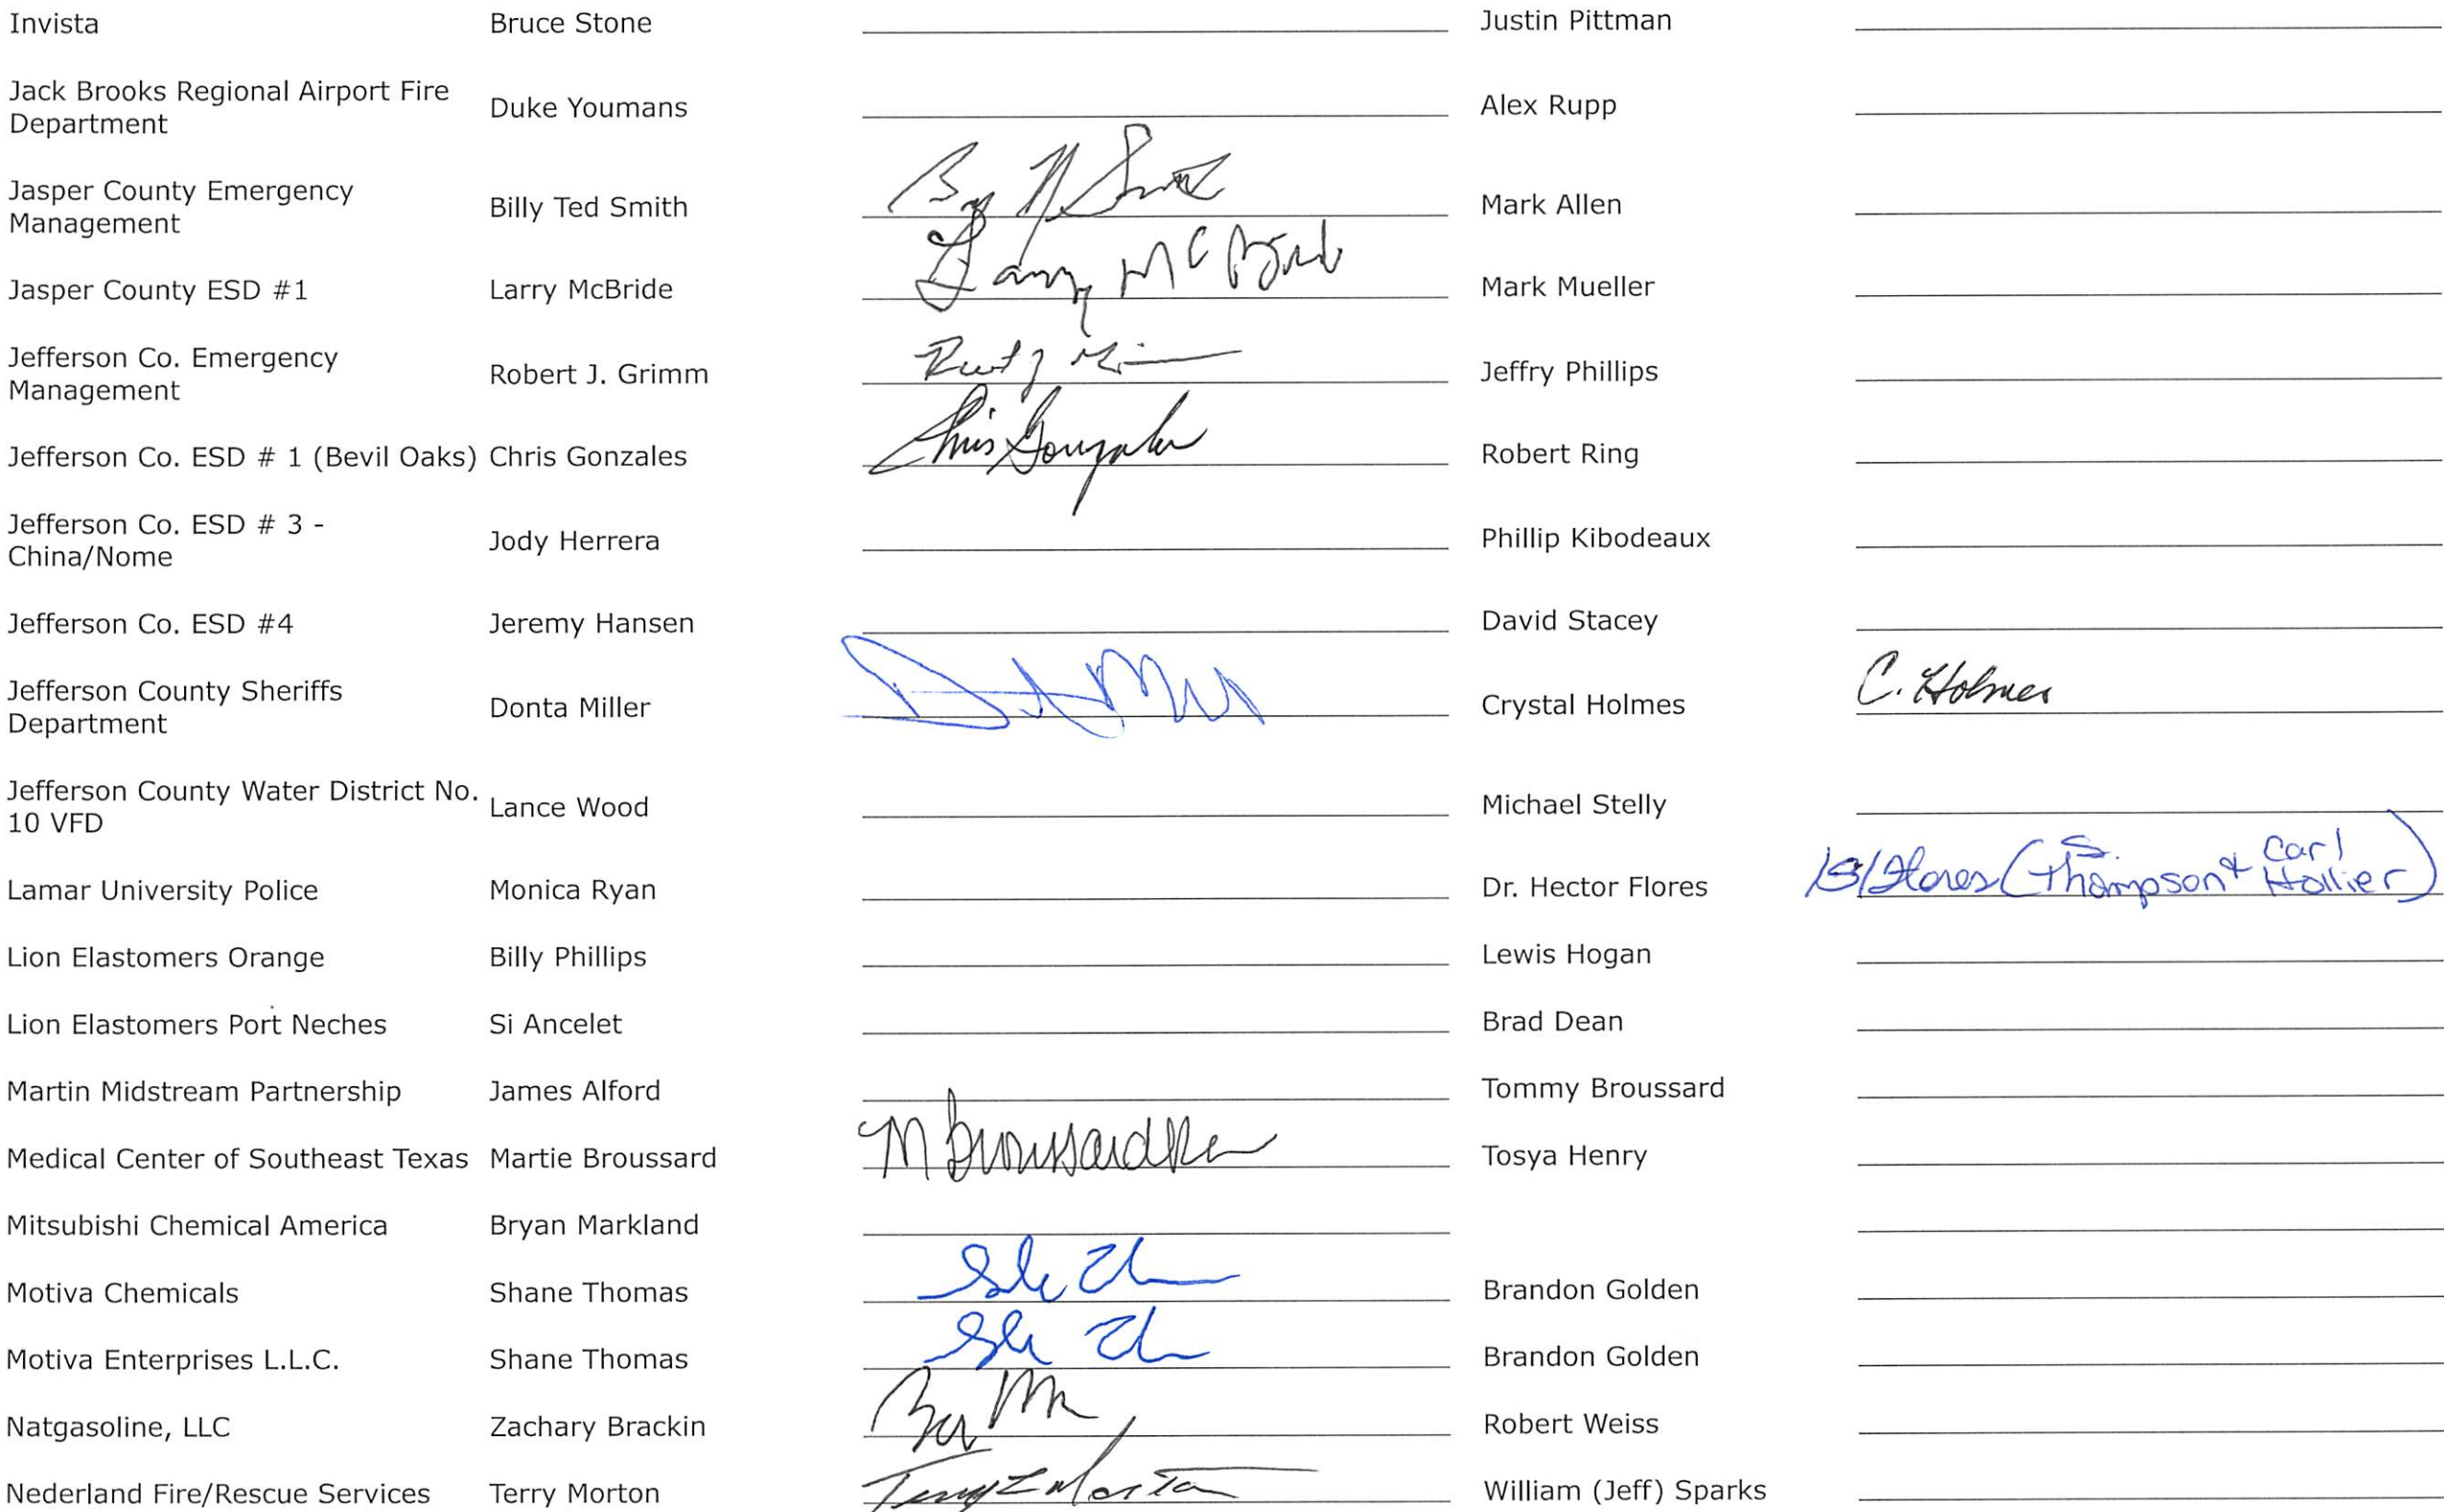 Invista Bruce Stone Justin Pittman
Jack Brooks Regional Airport Fire
Department Duke Youmans Alex Rupp
Jasper County Emergency
Management Billy Ted Smith Mark Allen
Jasper County ESD #1 Larry McBride Larry McBride Mark Mueller
Jefferson Co. Emergency
Management Robert J. Grimm Jeffry Phillips
Jefferson Co. ESD # 1 (Bevil Oaks) Chris Gonzales Chris Gonzales Robert Ring
Jefferson Co. ESD # 3 -
China/Nome Jody Herrera Phillip Kibodeaux
Jefferson Co. ESD #4 Jeremy Hansen David Stacey
Jefferson County Sheriffs
Department Donta Miller Crystal Holmes C. Holmes
Jefferson County Water District No.
10 VFD Lance Wood Michael Stelly
Lamar University Police Monica Ryan Dr. Hector Flores /S/ Flores (S. Thompson + Carl Hollier)
Lion Elastomers Orange Billy Phillips Lewis Hogan
Lion Elastomers Port Neches Si Ancelet Brad Dean
Martin Midstream Partnership James Alford Tommy Broussard
Medical Center of Southeast Texas Martie Broussard M Broussard Tosya Henry
Mitsubishi Chemical America Bryan Markland
Motiva Chemicals Shane Thomas Brandon Golden
Motiva Enterprises L.L.C. Shane Thomas Brandon Golden
Natgasoline, LLC Zachary Brackin Robert Weiss
Nederland Fire/Rescue Services Terry Morton Terry Morton William (Jeff) Sparks